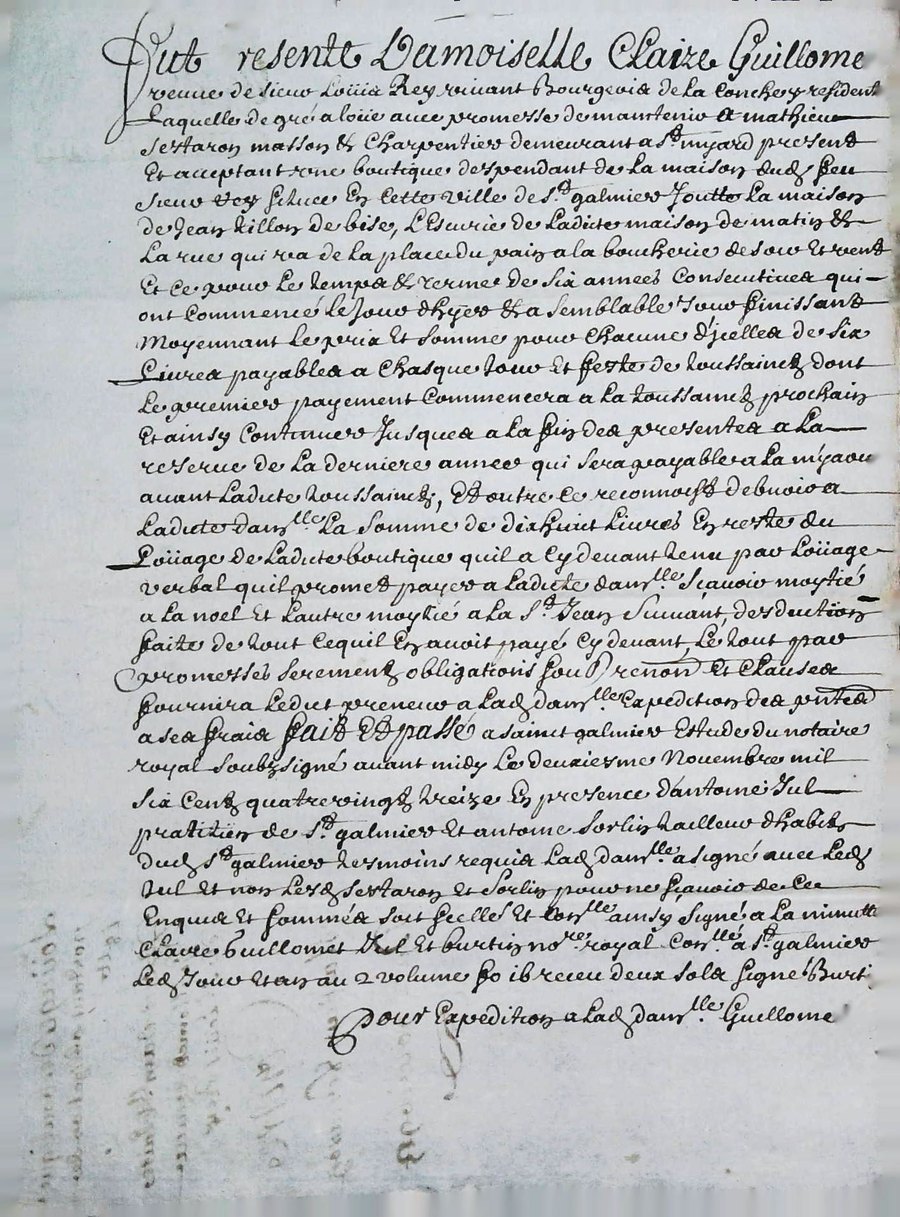 Fut resente Damoiselle Claize Guillome
vefue de sieur Loüis Rey vivant Bourgeois de la Conchey resident
Laquelle de gré a loüe avec promesse de maintenir a mathieu
Sestaron masson & Charpentier demeurant a St myard present
Et acceptant une boutique despendant de la maison dud feu
sieur Rey situee En Cette ville de St galmier Joutte La maison
de Jean Tillon de bise, L'Escurie de Ladite maison de matin &
La rue qui va de la place du pain a la boucherie de soir Et vent
Et Ce pour Le temps & terme de six années Consecutives qui
ont Commencé le Jour d'hyer & a semblable Jour finissant
Moyennant Le prix Et somme pour Chacune d'jcelles de six
Livres payables a Chasque Jour Et feste de toussainctz dont
Le premier payement Commencera a la toussainctz prochain
Et ainsy Continuer Jusques a la fin des presentes a La
reserve de La derniere année qui sera payable a La myaou
avant Ladite toussainctz, Et outre Ce reconnoist debvoir a
Ladite damlle La somme de dixhuit Livres En reste du
Loüage de Ladite boutique quil a Cy devant tenu par Loüage
verbal quil promet payer a Ladite damlle Sçavoir moytié
a La noel Et Lautre moytié a La St Jean Suivant, desduction
faite de tout Cequil En avoit payé Cy devant, Le tout par
promesses serementz obligations soub renon Et Clauses
fournira Ledit preneur a Lad damlle Expedition des pntes
a ses frais fait Et passé a saint galmier Estude du notaire
royal soubzsigné avant midy Le deuxiesme Novembre mil
six Centz quatre vingtz treize En presence d'antoine Jul
pratitien de St galmier Et antoine Sorlin tailleur d'habitz
dud St galmier tesmoins requis Lad damlle a signé avec Led
Jul Et non Lesd Sestaron Et Sorlin pour ne sçavoir de Ce
Enquis Et sommés soit scellés Et Conlle ainsy signé a La minutte
Claire Guillomet Jul Et burtin nore royal Conllé a St galmier
Led Jour Et an au 2 volume fo ib receu deux sols signé Burt
Pour Expedition a Lad damlle Guillome